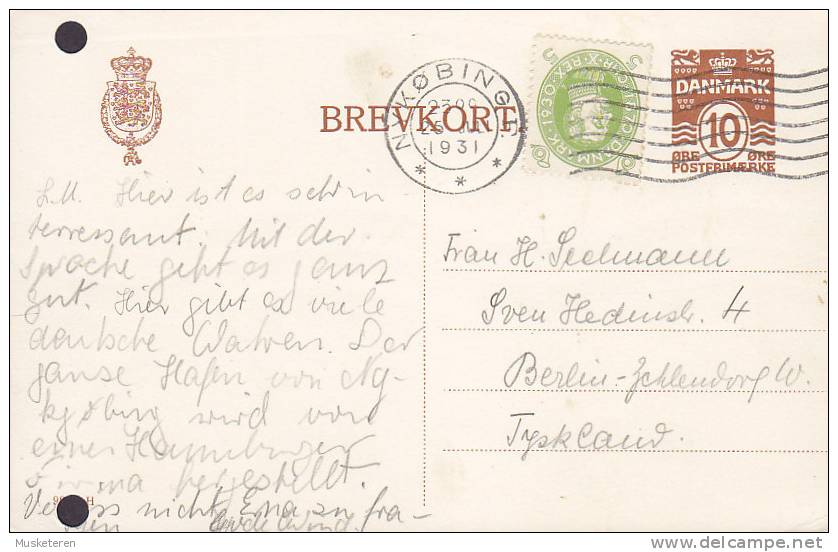 NYKØBING
1931
BREVKORT
5 1930 DANMARK 5
DANMARK
10
ØRE ØRE
POSTFRIMÆRKE
L.M. Hier ist es sehr in
terressant. Mit der
Sprache geht es ganz
gut. Hier gibt es viele
deutsche Wahren. Der
ganse Hafen von Ny-
kjøbing wird von
einer Hamburger
Firma hergestellt.
Vergiss nicht Erna zu fra-
gen
Frau H. Seelmann
Sven Hedinstr. 4
Berlin-Zehlendorf W.
Tyskland.
H
Musketeren
delcampe.net